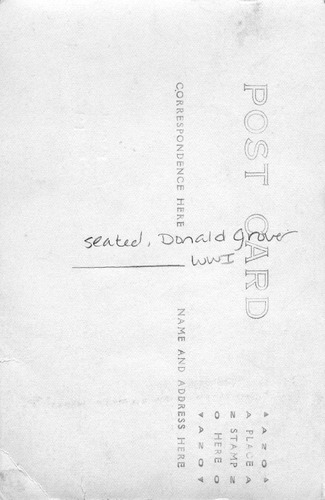 POST CARD
CORRESPONDENCE HERE
NAME AND ADDRESS HERE
AZOA
PLACE
STAMP
HERE
AZOV
seated, Donald Grover
WWI